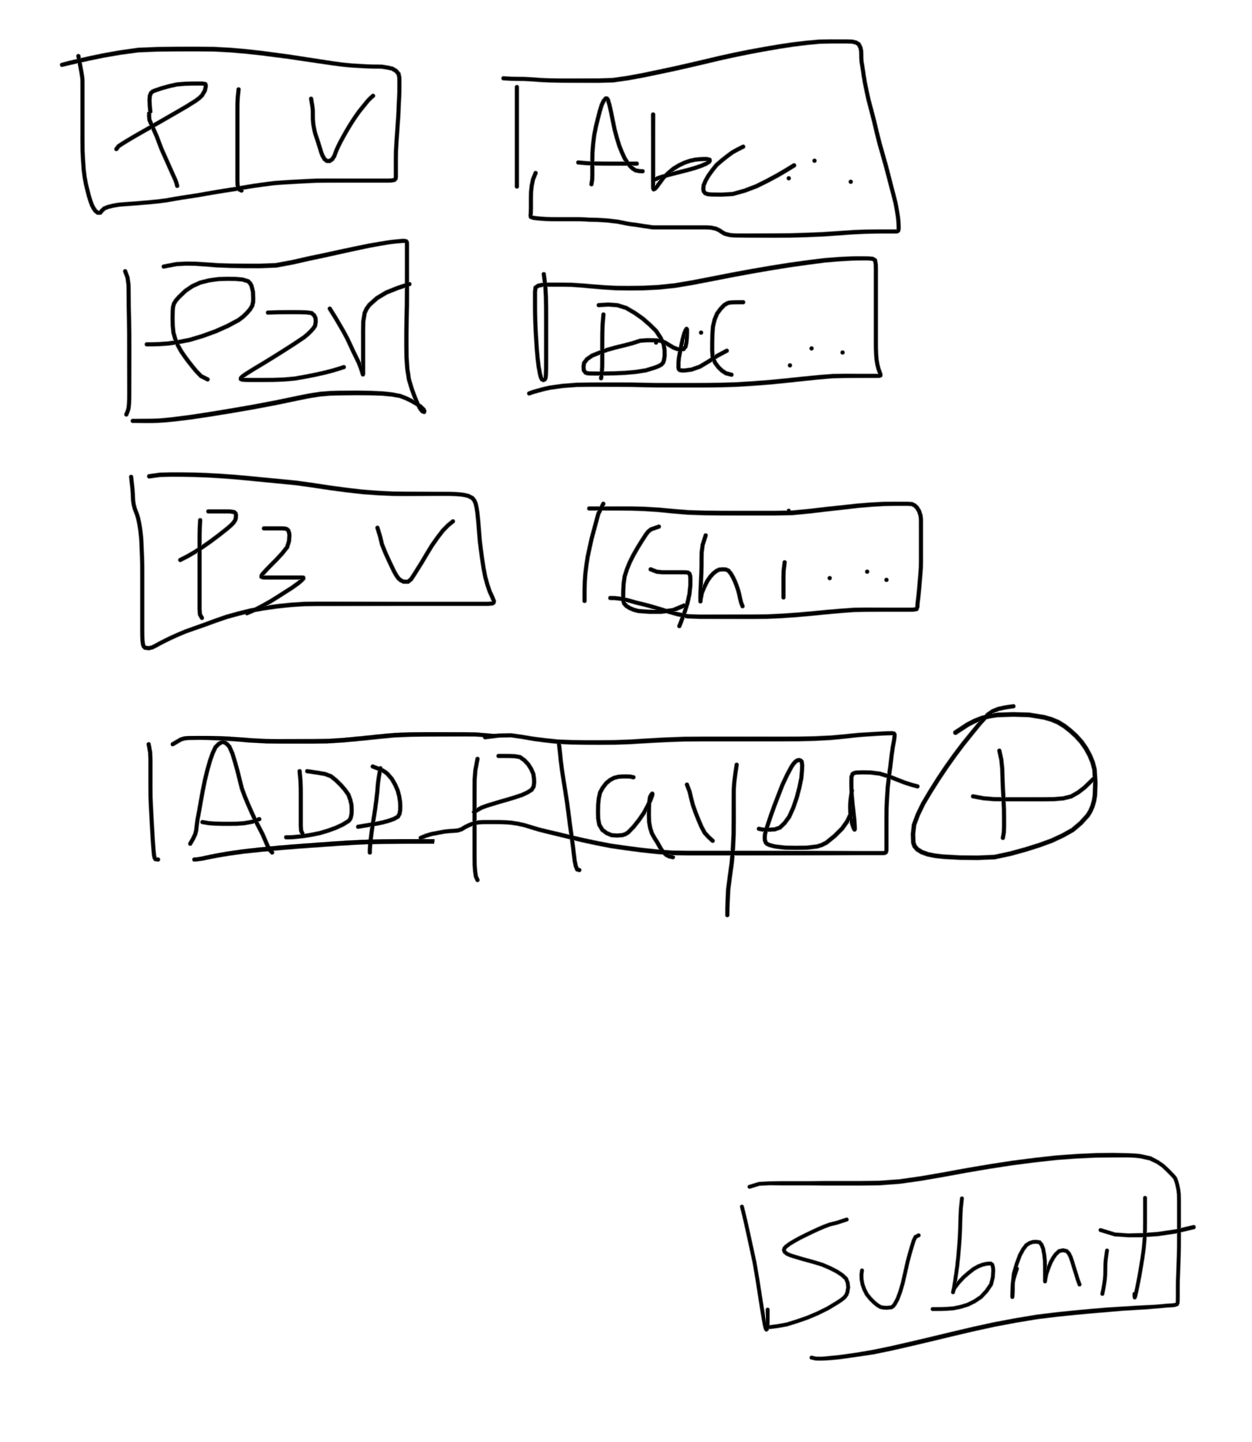 P1 V Abc...
P2 V Def...
P3 V Ghi...
ADD Player +
Submit